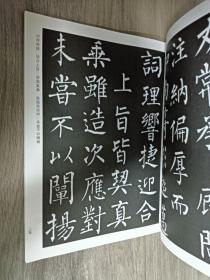 友常承顧問
注納偏厚而
詞理響捷迎合
上旨皆契真
乘雖造次應對
未嘗不以闡揚